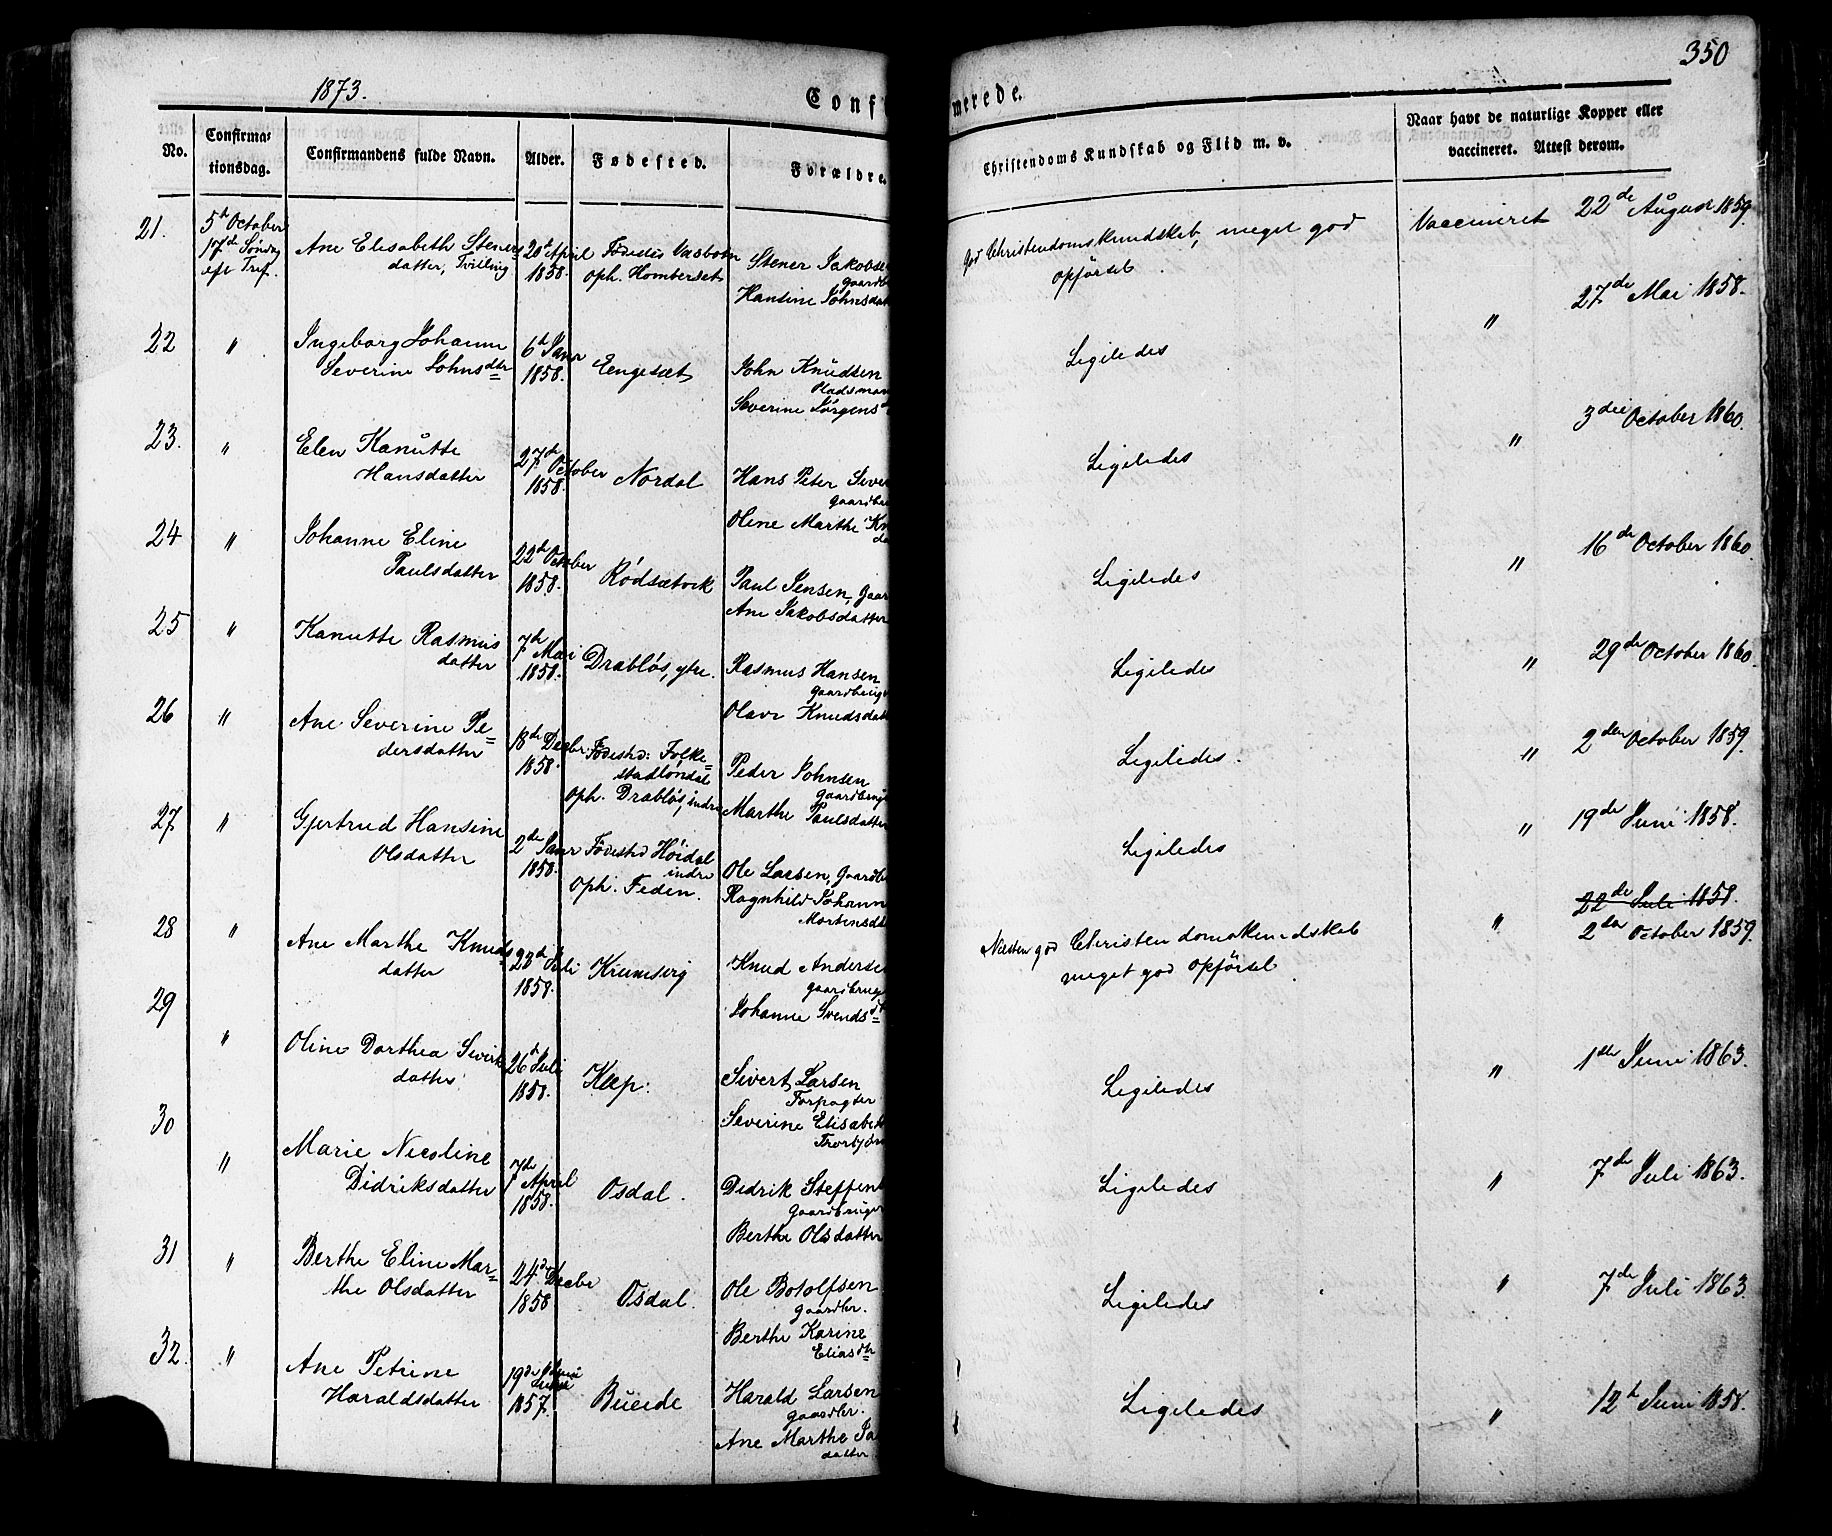 350
1873.
Conf merede.
No.
Confirma-
tionsdag.
Confirmandens fulde Navn.
Alder.
Fødested.
Forældre
Christendoms Kundskab og Flid m. v.
Naar havt de naturlige Kopper eller
vaccineret. Attest derom.
21.
5te October
17de Søndag
eft Tref.
Ane Elisabeth Steners
datter, Tvilling
20de April
1858.
Fødested Vasbotn
oph. Homberset
Stener Jakobse
gaardb
Hansine Johnsdat
god Christendomskundskab, meget god
opførsel.
Vaccineret
22de August 1859.
22
"
Ingeborg Johanne
Severine Johnsdtr
6te Janr
1858.
Eengesæt
John Knudsen
Pladsman
Severine Jørgens
Ligeledes
"
27de Mai 1858.
23.
"
Elen Kanutte
Hansdatter
27de October
1858.
Nordal
Hans Peter Siver
gaardb
Oline Marthe Kn
da
Ligeledes
"
3die October 1860.
24
"
Johanne Eline
Paulsdatter
22de October
1858.
Rødsætvik
Paul Jensen, Gaar
Ane Jakobsdatter
Ligeledes
"
16de October 1860.
25
"
Kanutte Rasmus
datter
7de Mai
1858.
Drabløs, ytre.
Rasmus Hansen
gaardbruge
Olave Knudsdatt
Ligeledes
"
29de October 1860.
26
"
Ane Severine Pe=
dersdatter
18de Decbr
1858.
Fødested: Folke=
stadløndal
oph. Drabløs, indre
Peder Johnsen
gaardbruge
Marthe Paulsdatter
Ligeledes.
"
2den October 1859.
27
"
Gjertrud Hansine
Olsdatter
2de Janr
1858.
Fødested Høidal
indre
oph. Feden.
Ole Larsen, Gaardb
Ragnhild Johann
Mortensda
Ligeledes
"
19de Juni 1858.
28
"
Ane Marthe Knuds
datter
23de Juli
1858.
Krumsvig
Knud Anderse
gaardbruge
Johanne Svendsdtr
Næsten god Christendomskundskab
meget god opførsel
"
22de Juli 1858.
2den October 1859.
29
"
Oline Dorthea Siverts
datter
26de Juli
1858.
Keep.
Sivert Larsen
Forpagter
Severine Elisabeth
Ligeledes
"
1ste Juni 1863.
30
"
Marie Nicoline
Didriksdatter
7de April
1858.
Osdal.
Didrik Steffen
Gaardbruger
Berthe Olsdatter
Ligeledes
"
7de Juli 1863.
31
"
Berthe Eline Mar=
the Olsdatter
24de Decbr
1858
Osdal.
Ole Botolfsen
gaardbr.
Berthe Karine
Eliasdtr
Ligeledes
"
7de Juli 1863.
32.
"
Ane Petrine
Haraldsdatter
19de
1857.
Bueide
Harald Larsen
gaardbr.
Ane Marthe Ja
datter
Ligeledes
"
12te Juni 1858.